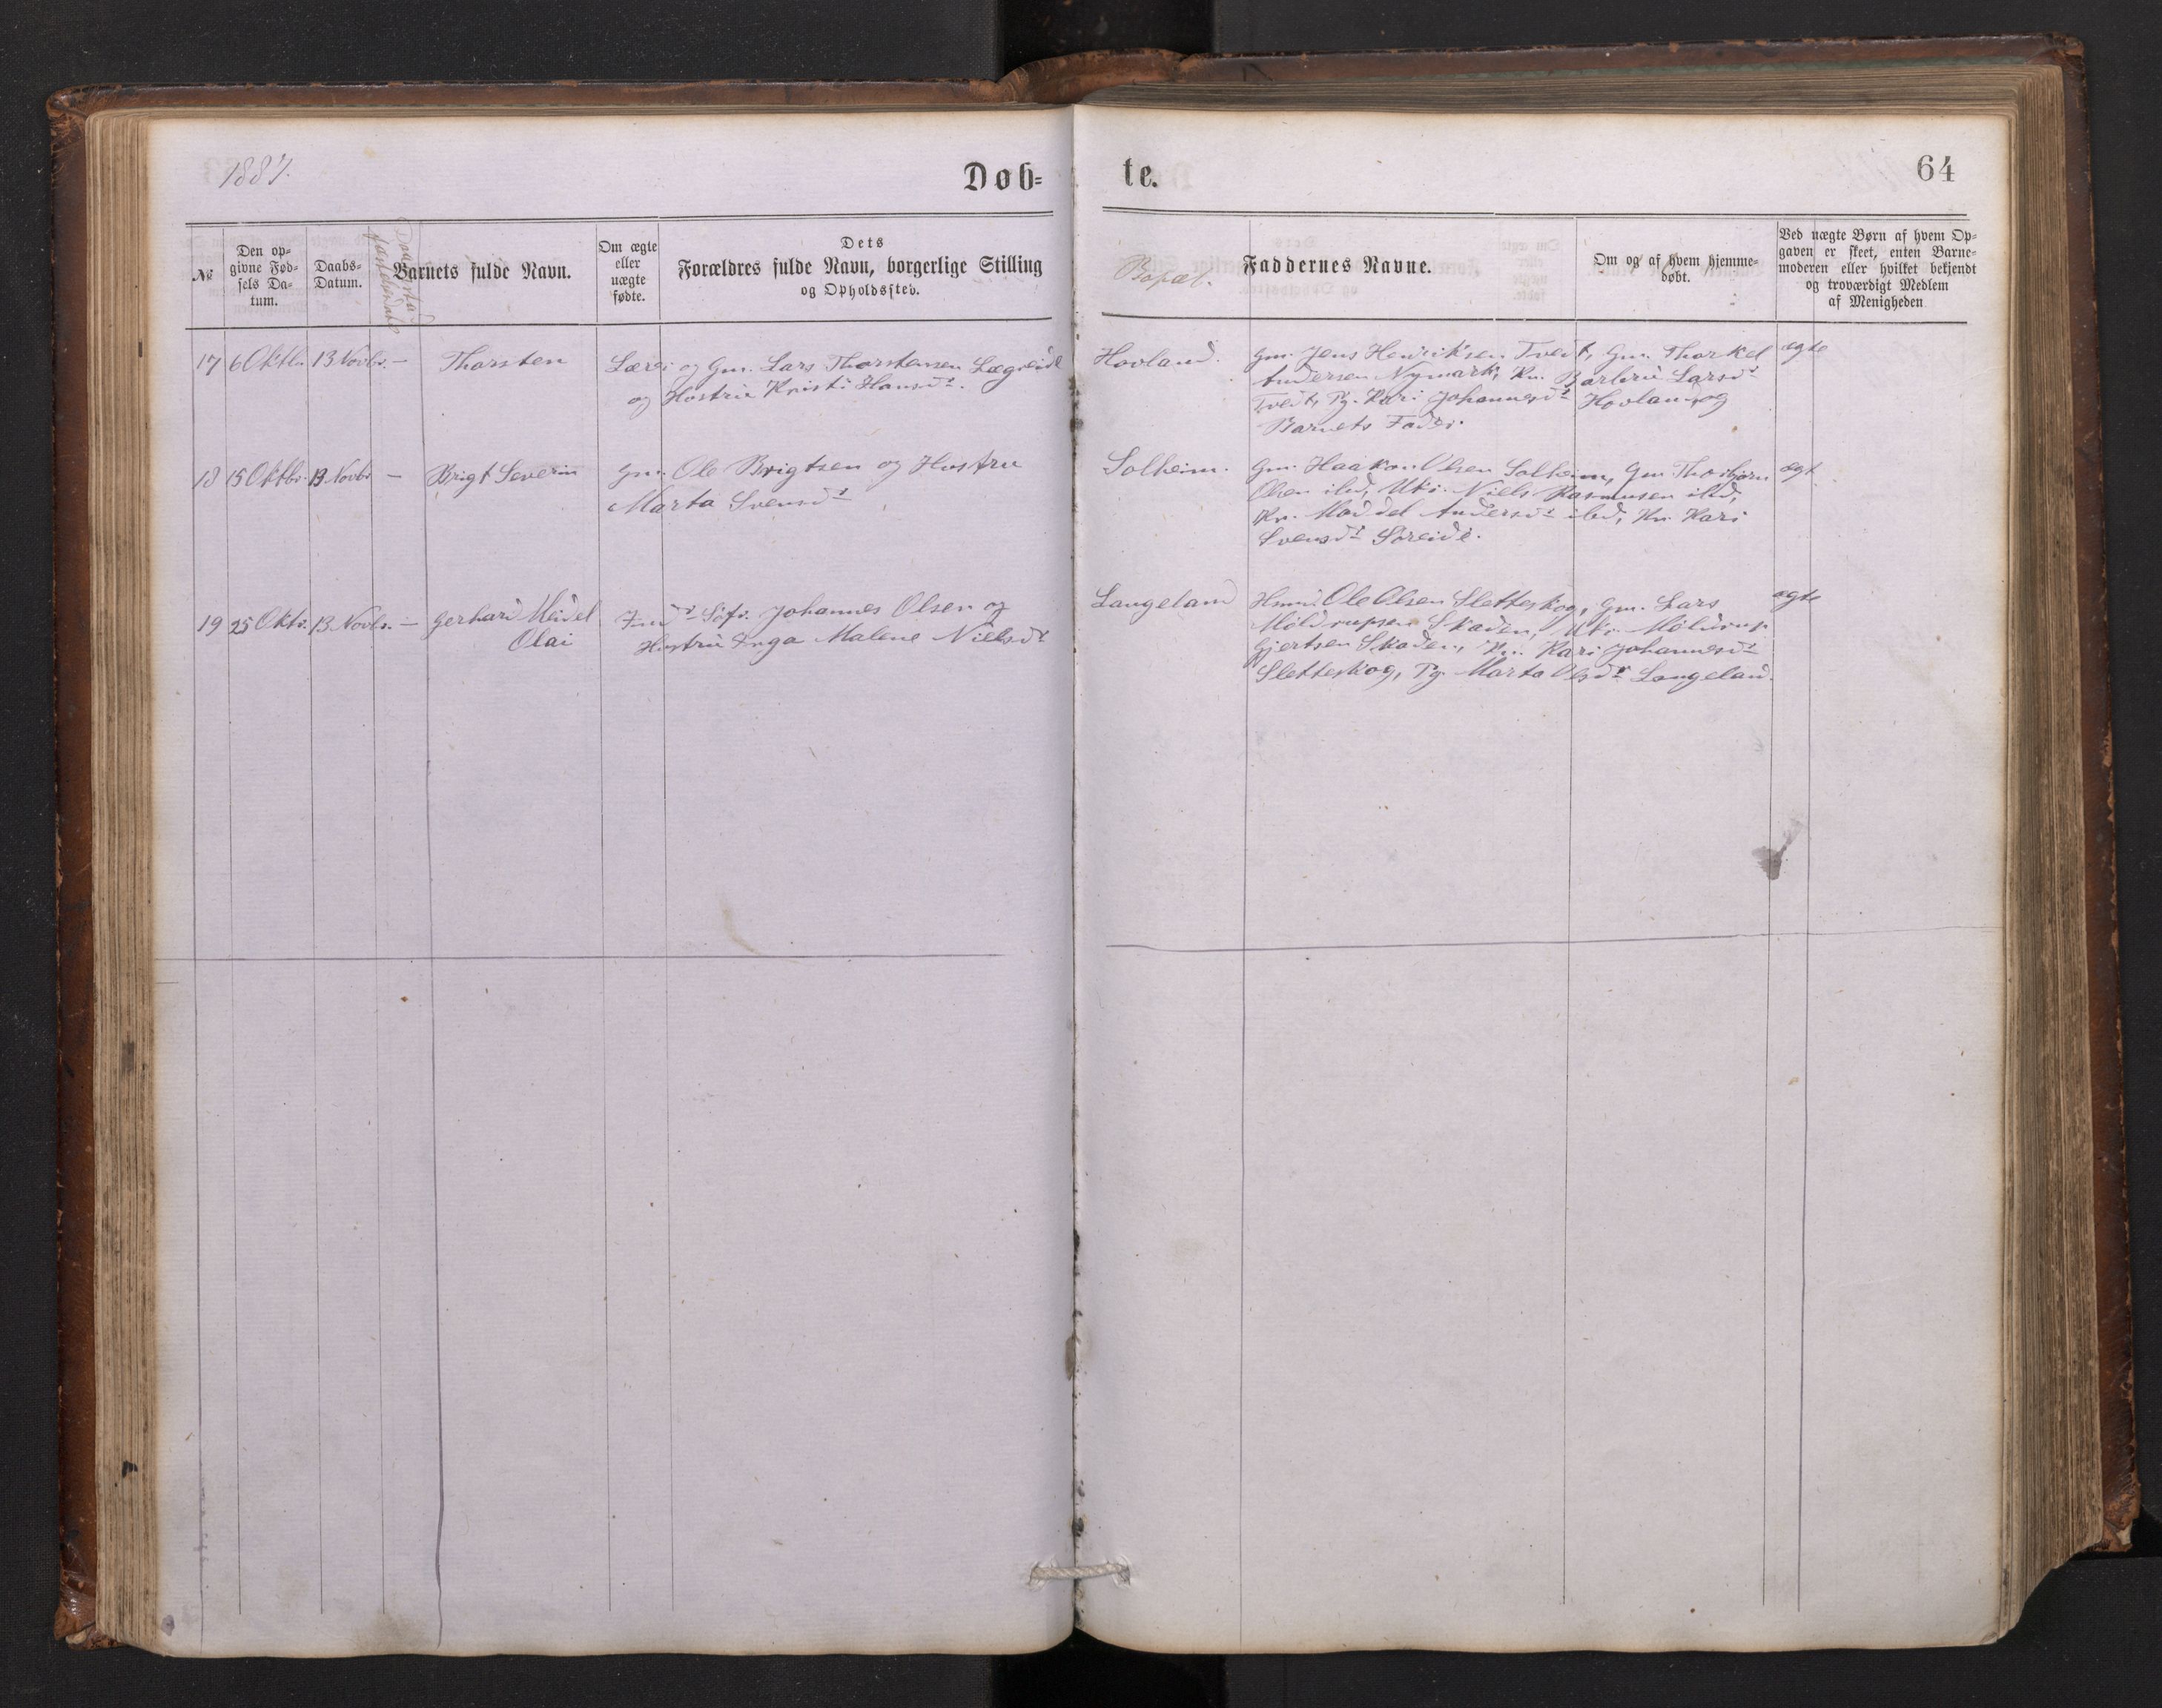 1887.
Døb=
te.
64
№
Den op=
givne Fød=
sels Da=
tum.
Daabs=
Datum.
Barnets fulde Navn.
Om ægte
eller
uægte
fødte.
Dets
Forældres fulde Navn, borgerlige Stilling
og Opholdssted.
Bopæl.
Faddernes Navne.
Om og af hvem hjemme=
døbt.
Ved uægte Børn af hvem Op=
gaven er skeet, enten Barne=
moderen eller hvilket bekjendt
og troværdigt Medlem
af Menigheden
17 6 Oktbr. 13 Novbr. — Thorsten
Lærer og Gm. Lars Thorstensen Lægreid
og Hustru Kristi Hansdr.
Hovland.
Gm. Jens Henriksen Tveit, Gm. Thorkel
Andersen Nymark, Kn. Barbru Larsdr
Tveit, Pg. Kari Johannesdr Hovland, og
Barnets Fader.
ægte
18 15 Oktbr. 13 Novbr — Brigt Severin
Gm. Ole Brigtsen og Hustru
Marta Svensdr
Solheim.
Gm. Haakon Olsen Solheim, Gm. Thorbjørn
Olsen ibd, Uki. Niels Rasmusen ibd,
Kn. Maddel Andersdr ibd, Kn. Kari
Svensdr Søreide.
ægt
19 25 Oktr. 13 Novbr. — Gerhard Meidel
Olai
Johannes Olsen og
Hustru Inga Malene Nielsdr
Langeland
Hmd. Ole Olsen Sletteskog, Gm. Lars
Møldrupsen Skaden, Uki. Møldrup
Gjertsen Skaden, Kn. Kari Johannesdr
Sletteskog, Pg. Marta Olsdr Langeland.
ægte